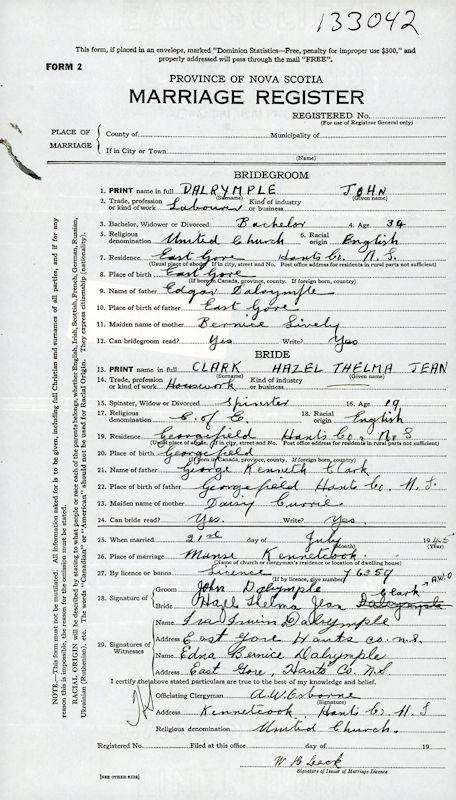 133042
This form, if placed in an envelope, marked "Dominion Statistics—Free, penalty for improper use $300," and
properly addressed will pass through the mail "FREE".
FORM 2
PROVINCE OF NOVA SCOTIA
MARRIAGE REGISTER
REGISTERED No.
(For use of Registrar General only)
PLACE OF MARRIAGE
County of Municipality of
If in City or Town
(Name)
BRIDEGROOM
1. PRINT name in full DALRYMPLE JOHN
(Surname) (Given name)
2. Trade, profession or kind of work Labourer Kind of industry or business
3. Bachelor, Widower or Divorced Bachelor 4. Age 34
5. Religious denomination United Church 6. Racial origin English
7. Residence East Gore Hants Co. N.S.
(Usual place of abode. If in city, street and No. Post office address for residents in rural parts not sufficient)
8. Place of birth East Gore
(If born in Canada, province, county. If foreign born, country)
9. Name of father Edgar Dalrymple
10. Place of birth of father East Gore
11. Maiden name of mother Bernice Lively
12. Can bridegroom read? Yes Write? Yes
BRIDE
13. PRINT name in full CLARK HAZEL THELMA JEAN
(Surname) (Given name)
14. Trade, profession or kind of work Housework Kind of industry or business
15. Spinster, Widow or Divorced Spinster 16. Age 19
17. Religious denomination C. of E. 18. Racial origin English
19. Residence Georgefield Hants Co. N.S
(Usual place of abode. If in city, street and No. Post office address for residents in rural parts not sufficient)
20. Place of birth Georgefield
(If born in Canada, province, county. If foreign born, country)
21. Name of father George Kenneth Clark
22. Place of birth of father Georgefield Hants Co. N.S.
23. Maiden name of mother Daisy Currie
24. Can bride read? Yes. Write? Yes.
25. When married 21st day of July 1945
(Month) (Year)
26. Place of marriage Manse Kennetcook
(Name of church or clergyman's residence or location of dwelling house)
27. By licence or banns Licence (If by licence, give number) Y 6359
28. Signature of
Groom John Dalrymple
Clark A.W.O
Bride Hazel Thelma Jean Dalrymple
29. Signatures of Witnesses
Name Ira Irwin Dalrymple
Address East Gore Hants co. n.s.
Name Edna Bernice Dalrymple
Address East Gore, Hants Co. N.S
I certify the above stated particulars are true to the best of my knowledge and belief.
Officiating Clergyman A.W. Osborne
(Signature)
Address Kennetcook, Hants Co. N.S
Religious denomination United Church.
Registered No. Filed at this office day of 19
W B Leck
Signature of Issuer of Marriage Licence
[SEE OTHER SIDE]
NOTE.—This form must not be mutilated. All information asked for is to be given, including full Christian and surnames of all parties, and if for any
reason this is impossible, the reason for the omission must be stated.
RACIAL ORIGIN will be described by stating to what people or race each of the parents belongs, whether English, Irish, Scottish, French, German, Russian,
Ukrainian (Ruthenian), etc. The words "Canadian" or "American" should not be used for Racial Origin. They express citizenship (nationality).